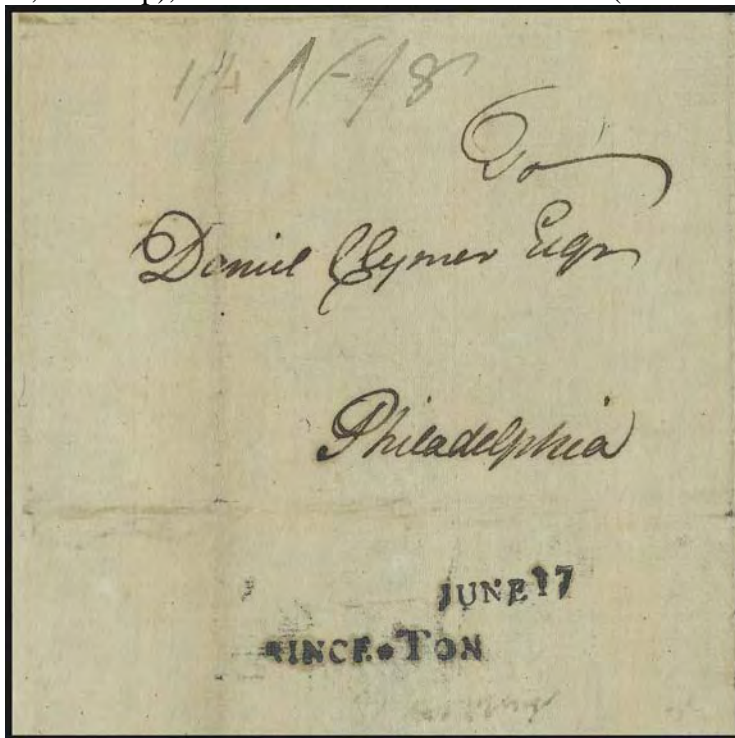 N-48
To
Daniel Clymer Esqr
Philadelphia
JUNE 17
RINCE•TON